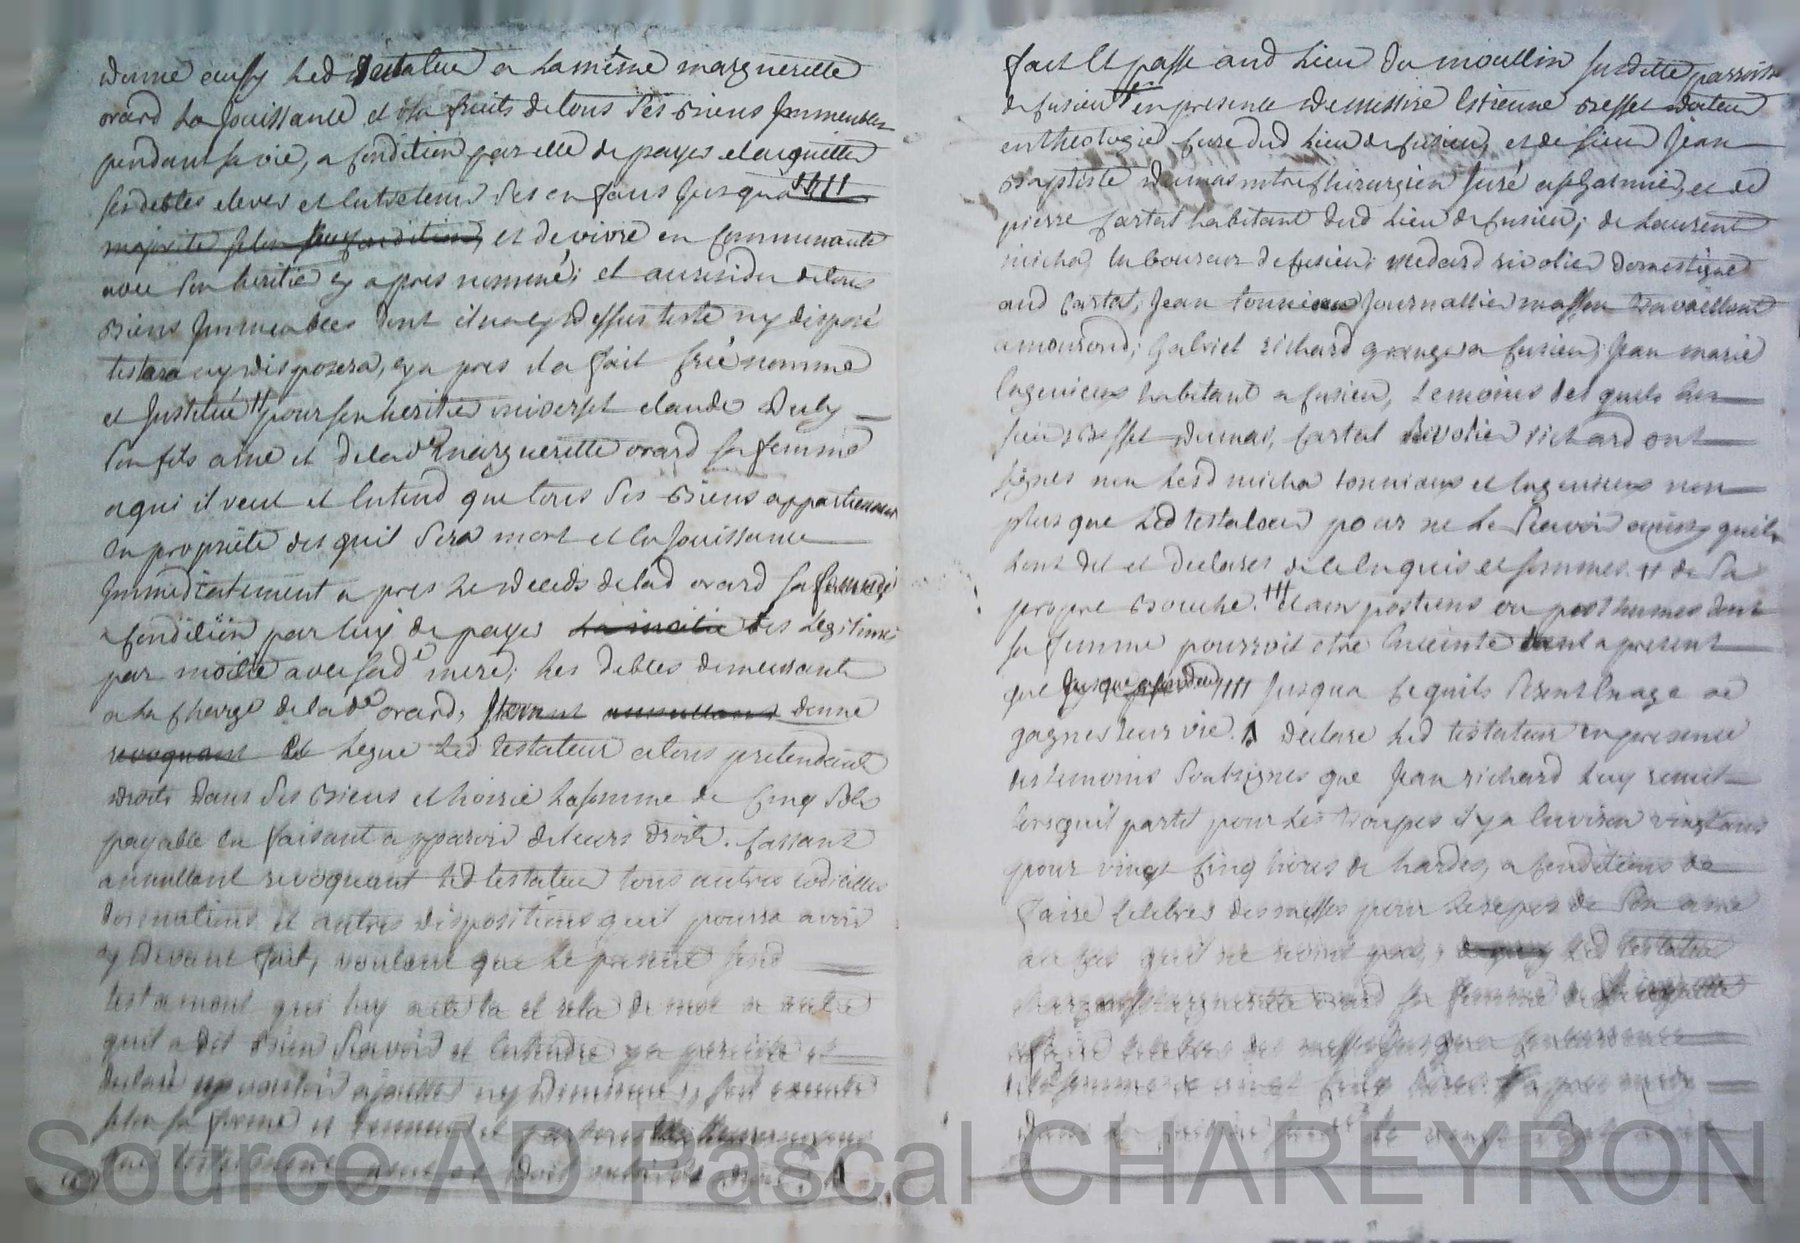 donne aussy led testateur a la mesme marguerette
orard la Jouissance et les fruits de tous ses biens Immeubles
pendant sa vie, a Condition par elle de payer et acquitter
ses debtes elever et Entretenir ses enfans Jusqua ††††
majorité selon sa Condition, et de vivre en Communauté
avec son heritier cy apres nommé; et au residu de tous
biens Immeubles dont il na cy dessus testé ny disposé
testera ny disposera, cy apres il a fait Créé nomme
et Institué †† pour son heritier universel claude
son fils ainé et de lad marguerette orard sa femme
a qui il veut et Entend que tous ses biens appartiennent
En propriété des quil sera mort et En Jouissance
Immediatement apres le deceds de lad orard sa femme
a Condition par luy de payer la moitié les legitimes
par moitié avec sad mere; les debtes demeurante
a la Charge de lad orard, donne
revoquant et legue led testateur a tous pretendant
droits dans ses biens et hoirie la somme de Cinq sols
payable En faisant apparoir de leurs droits. Cassant
annullant revoquant led testateur tous autres codicilles
donnations et autres dispositions quil pourra avoir
cy devant fait, voulant que le present seul
testament qui luy a été lu et relu de mot a autre
quil a dit bien scavoir et Entendre y a persisté et
declaré ny vouloir ajouter ny diminuer, soit executé
selon sa forme et teneur et
Fait Et passé aud Lieu du moullin susditte parroisse
de fusieu †† en presence de messire Estienne besset docteur
en theologie Curé dud Lieu de fusieu, et de sieur Jean
Baptiste dumas mtre Chirurgien Juré a st Galmier, et de
pierre Cartal habitant dud Lieu de fusieu; de Laurent
micha, laboureur de fusieu; medard rivolier domestique
aud Cartal, Jean Journallier masson travaillant
a; Gabriel richard granger a fusieu; Jean marie
Lagenieux habitant a fusieu, temoins des quels les
sieurs besset dumas, Cartal Rivolier richard ont
signés non Lesd micha et Lagenieux non
plus que led testateur pour ne le scavoir ainsy quils
lont dit et declarés de ce Enquis et sommes. †† de sa
propre bouche. ††† et aux postiens ou posthumes dont
sa femme pourroit etre Enceinte tant a present
que †††† Jusqua ce quils soient En age de
gagner leur vie. declare led testateur en presence
des temoins soubsignes que Jean richard luy remit
lorsquil partit pour les troupes il y a Environ vingt ans
pour vingt Cinq livres de hardes, a Conditions de
faire Celebrer des messes pour le repos de son ame
au Cas quil ne revint pas, led testateur
marguerette orard sa femme de
faire Celebrer des messes jusqua Concurrence
de la somme de vingt Cinq livres
Source AD Pascal CHAREYRON